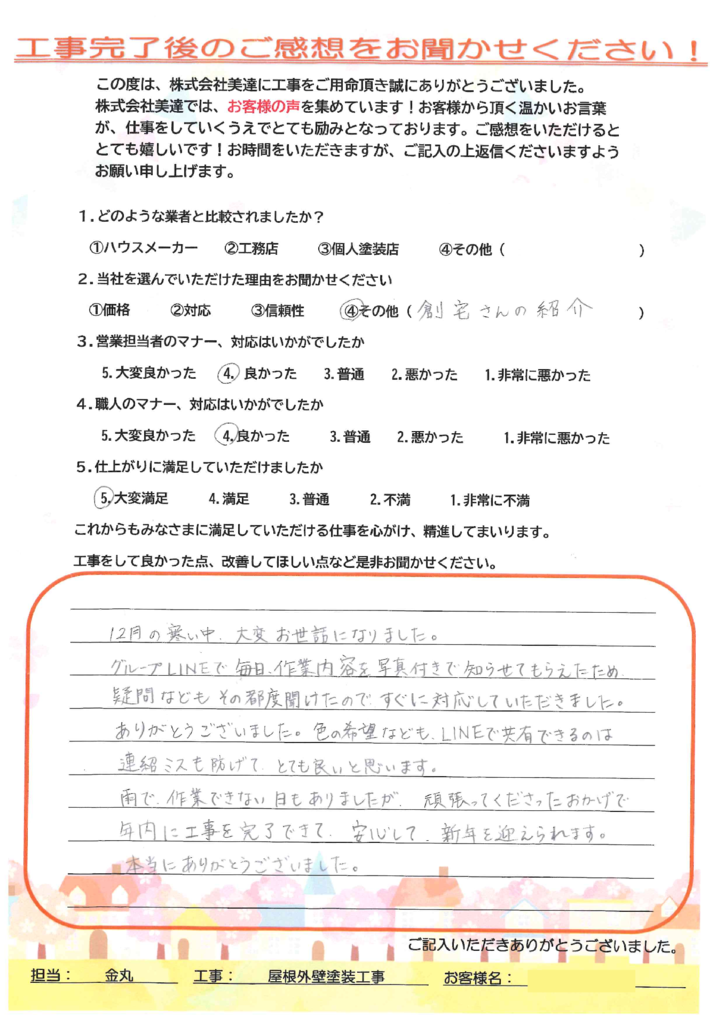 工事完了後のご感想をお聞かせください！
この度は、株式会社美達に工事をご用命頂き誠にありがとうございました。
株式会社美達では、お客様の声を集めています！お客様から頂く温かいお言葉
が、仕事をしていくうえでとても励みとなっております。ご感想をいただけると
とても嬉しいです！お時間をいただきますが、ご記入の上返信くださいますよう
お願い申し上げます。
１.どのような業者と比較されましたか？
①ハウスメーカー ②工務店 ③個人塗装店 ④その他（ ）
２.当社を選んでいただけた理由をお聞かせください
①価格 ②対応 ③信頼性 ④その他（創宅さんの紹介 ）
３.営業担当者のマナー、対応はいかがでしたか
5.大変良かった 4.良かった 3.普通 2.悪かった 1.非常に悪かった
４.職人のマナー、対応はいかがでしたか
5.大変良かった 4.良かった 3.普通 2.悪かった 1.非常に悪かった
５.仕上がりに満足していただけましたか
5.大変満足 4.満足 3.普通 2.不満 1.非常に不満
これからもみなさまに満足していただける仕事を心がけ、精進してまいります。
工事をして良かった点、改善してほしい点など是非お聞かせください。
12月の寒い中、大変お世話になりました。
グループLINEで毎日、作業内容を写真付きで知らせてもらえたため、
疑問などもその都度聞けたので、すぐに対応していただきました。
ありがとうございました。色の希望なども、LINEで共有できるのは
連絡ミスも防げて、とても良いと思います。
雨で、作業できない日もありましたが、頑張ってくださったおかげで
年内に工事を完了できて、安心して、新年を迎えられます。
本当にありがとうございました。
ご記入いただきありがとうございました。
担当： 金丸 工事： 屋根外壁塗装工事 お客様名：